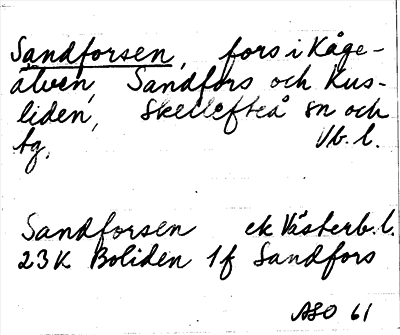 Sandforsen, fors i Kåge-
älven, Sandfors och Kus-
liden, Skellefteå sn och
tg, Vb. l.
Sandforsen ek Västerb. l.
23K Boliden 1f Sandfors
ASO 61